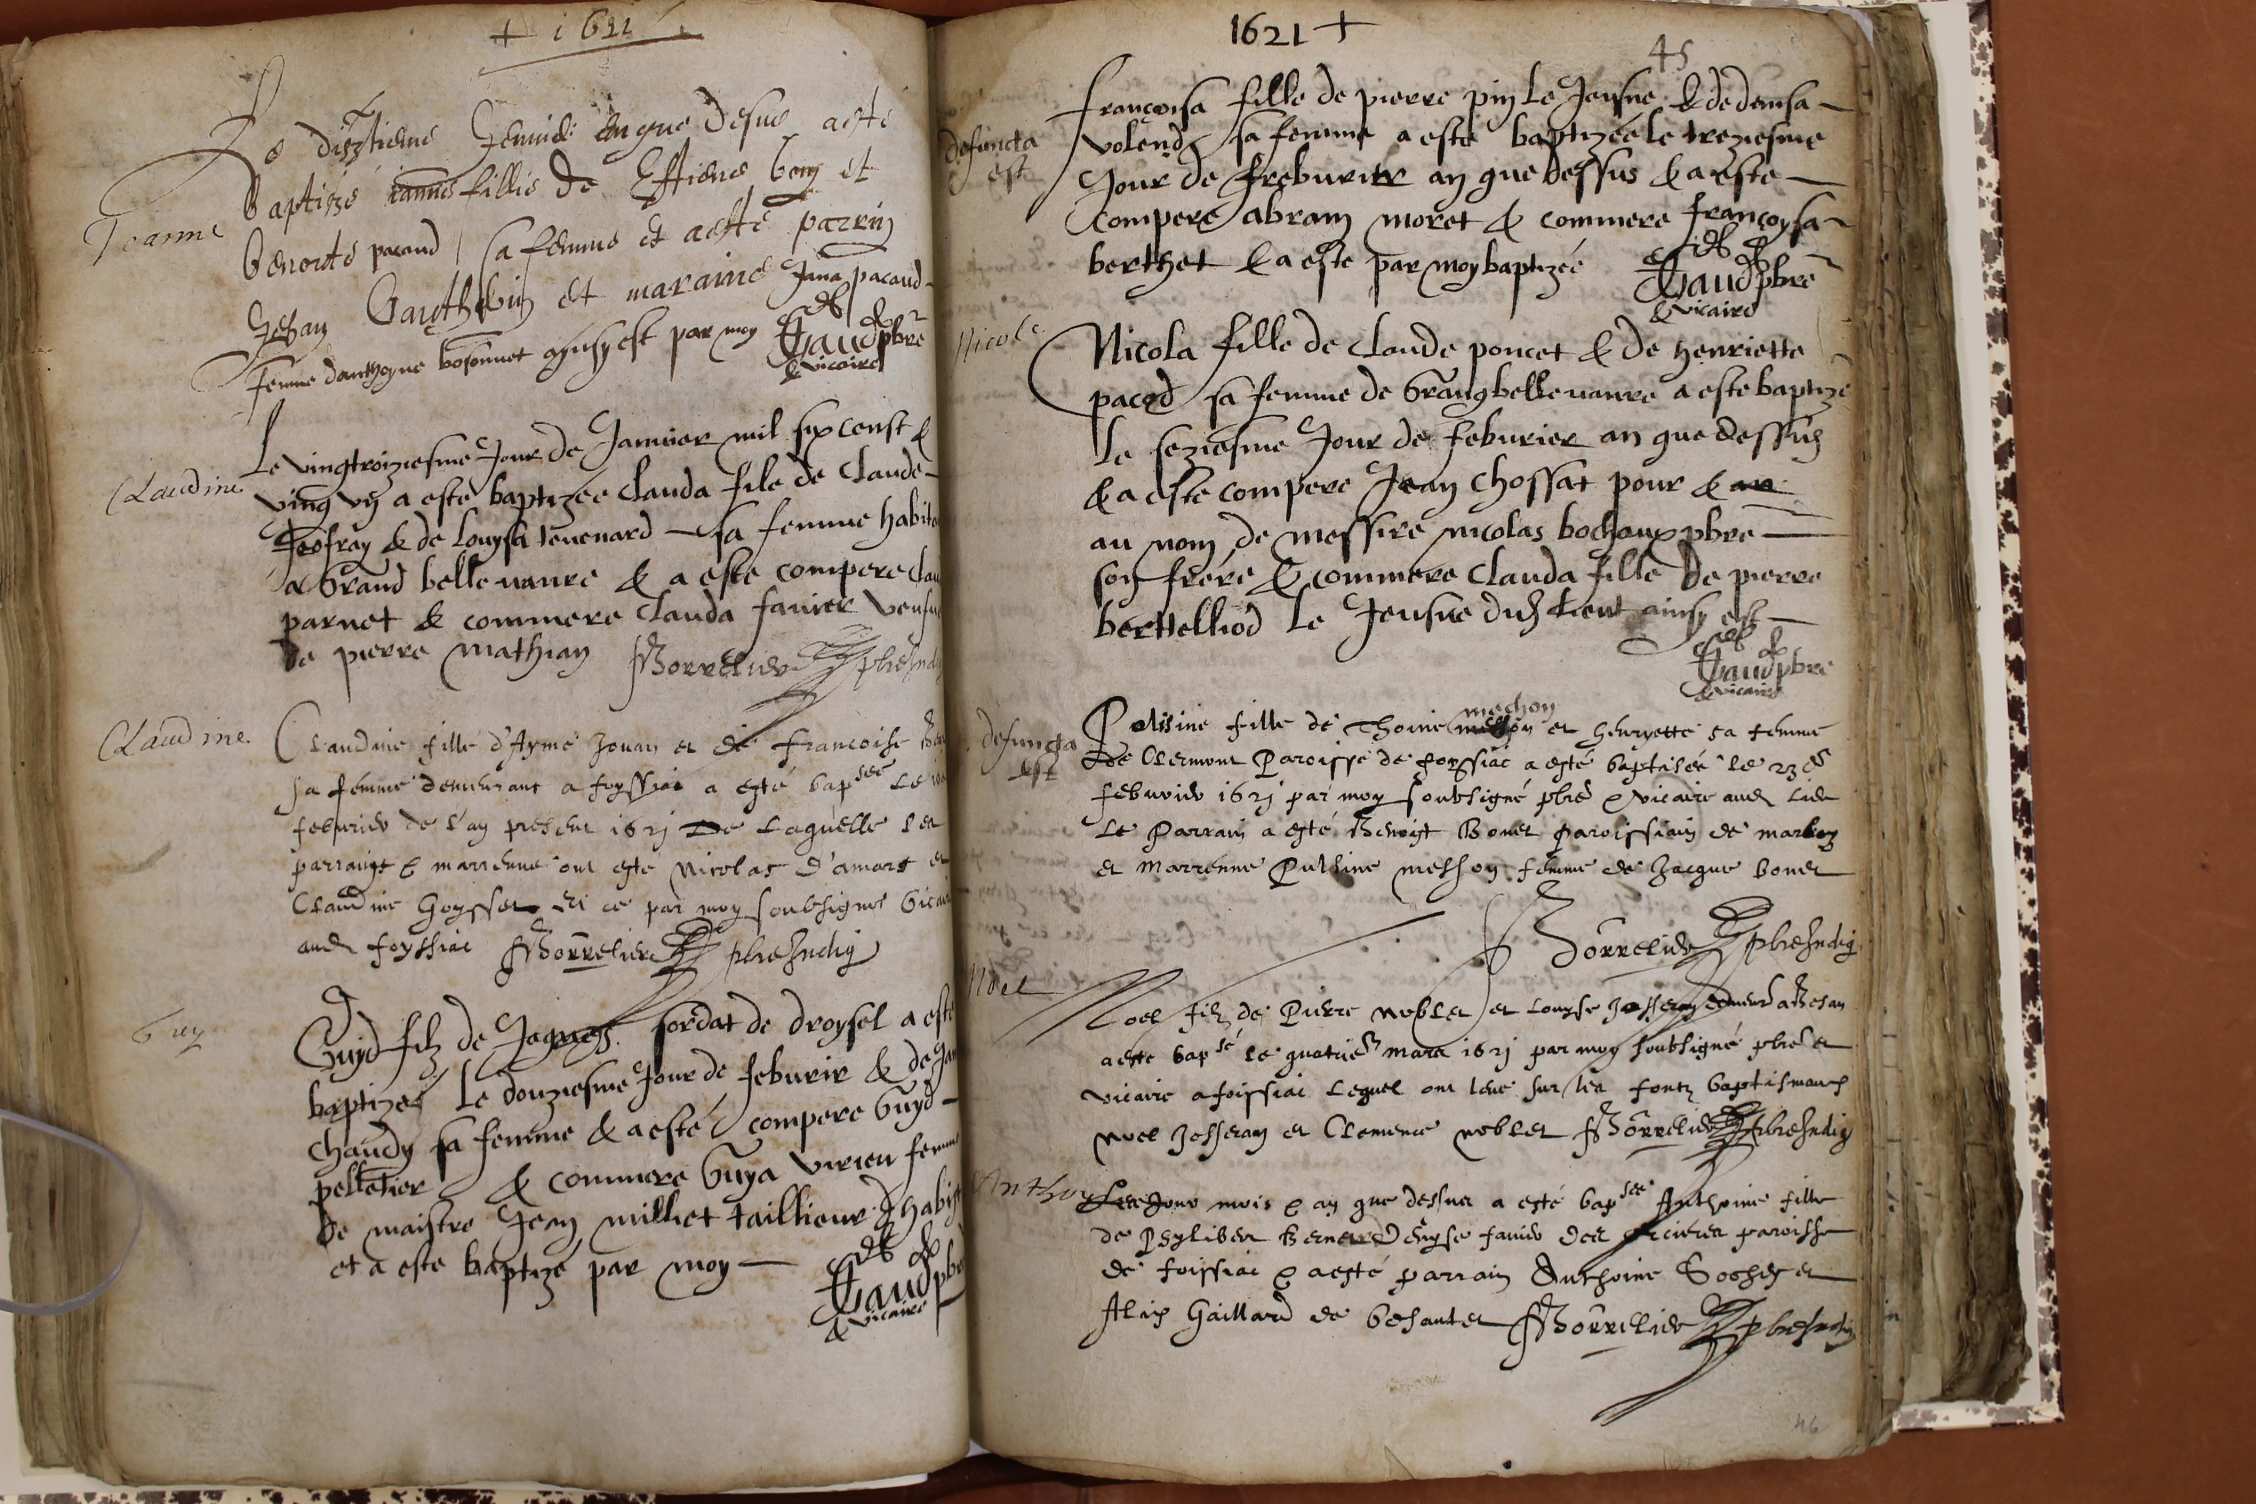 + 1621
Le diztieme Jenvié en que desus a esté
Jeanne
baptizé Janne fillie de Estiene bon et
benoite pacaud sa femme et a esté parrin
Jehan Gauthevin et maraine Jana pacaud
femme d'anthoyne bosonnet aynsy est par moy
Gaud pbre
& vicaire
Le vingtroiziesme Jour de Janvier mil six censt &
Claudine
ving un a este baptizée Clauda file de Claude
Jeofray & de Louysa tevenard sa femme habita
a Grand bellevavre & a este compere Clau
parnet & commere Clauda favier
de pierre mathian Borrelier pbre Indig
Claudine
Claudine fille d'Aymé Jouan et de Francoise
sa femme demeurant a foyssiac a esté bapsee le
feburier de l'an present 1621 De Laquelle les
parrains & marrenne ont esté Nicolas D'amars et
Claudine Goysset Et ce par moy soubsigné Vicaire
aud foyssiac Borrelier pbre Indig
Guy
Guyd filz de Jaques sordat de droysel a este
baptizes Le douziesme Jour de feburir & de Jan
chaudy sa femme & a esté compere Guyd
pelletier & commere Guya virieu femme
de maistre Jean milliet taillieur d habis
et a este baptizé par moy
Gaud pbre
& vicaire
1621 +
45
defuncta
est
Françoisa fille de pierre pin Le Jeusne & de densa
volend sa femme a esté baptizée le treziesme
Jour de freburier an que dessus & a este
compere abram moret & commere françoysa
berthet & a este par moy baptizée
Gaud pbre
& vicaire
Nicole
Nicola fille de Claude poncet & de henriette
pacod sa femme de Grang bellevavre a este baptizé
Le seziesme Jour de feburier an que dessus
& a este compere Jean Chossat pour & au
au nom de messire nicolas bochoux pbre
son frere & commere Clauda fille de pierre
bertelliod Le Jeusne dud Lieut ainsy est
Gaud pbre
& vicaire
defuncta
est
mechon
Polisine fille de Thoine et Henryette sa femme
de Clermont Paroisse de foyssiac a esté baptisée le 23
feburier 1621 par moy soubsigné pbre & Vicaire aud lieu
Le Parrain a esté Benoist Bonet paroissiain de marboz
et Marrenne Pulsine meschon femme de Jacque bonet
Borrelier pbre Indig
Noel
Noel filz de Pierre Noblet et Louyse Josseran demeur a Besan
a esté bapsé le quatrie mars 1621 par moy soubsigné pbre et
vicaire a foissiac Lequel ont levé sur les fontz baptismaux
Noel Josseran et Clemence Noblet Borrelier pbre Indig
Anthoy
Les Jour mois & an que dessus a esté bapsee Anthoine fille
de Phyliber Bernard Denyse favier des orcieres paroisse
de foissiac & a esté parrain Anthoine Sochey et
Alix Gaillard de besantet Borrelier pbre Indig
46